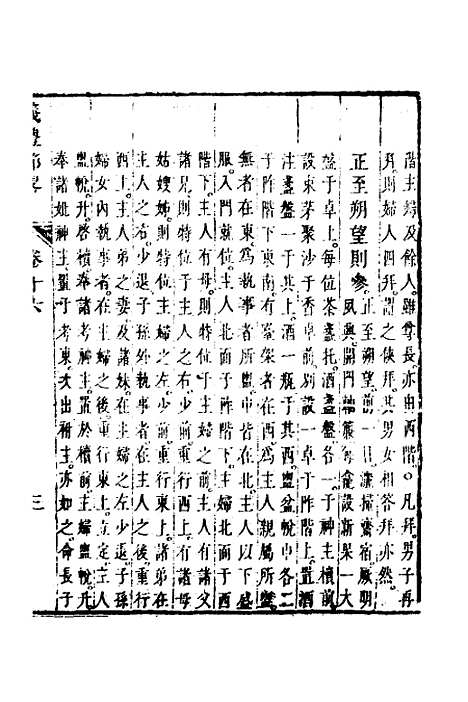 階主婦及餘人雖尊長亦由西階○凡拜男子再
拜則婦人四拜謂之俠拜其男女相答拜亦然
正至朔望則參正至朔望前一日灑掃齊宿厥明
夙興開門軸簾每龕設新果一大
盤于卓上每位茶盞托酒盞盤各一于神主櫝前
設束茅聚沙于香卓前別設一卓于阼階上置酒
注盞盤一于其上酒一瓶于其西盥盆帨巾各二
于阼階下東南有臺架者在西爲主人親屬所盥
無者在東爲執事者所盥巾皆在北主人以下盛
服入門就位主人北面于阼階下主婦北面于西
階下主人有母則特位于主婦之前主人有諸父
諸兄則特位于主人之右少前重行西上有諸母
姑嫂姊則特位主婦之左少前重行東上諸弟在
主人之右少退子孫外執事者在主人之後重行
西上主人弟之妻及諸妹在主婦之左少退子孫
婦女內執事者在主婦之後重行東上立定主人
盥帨升啓櫝奉諸考神主置於櫝前主婦盥帨升
奉諸妣神主置于考東次出祔主亦如之命長子
儀禮節畧 卷十六 三